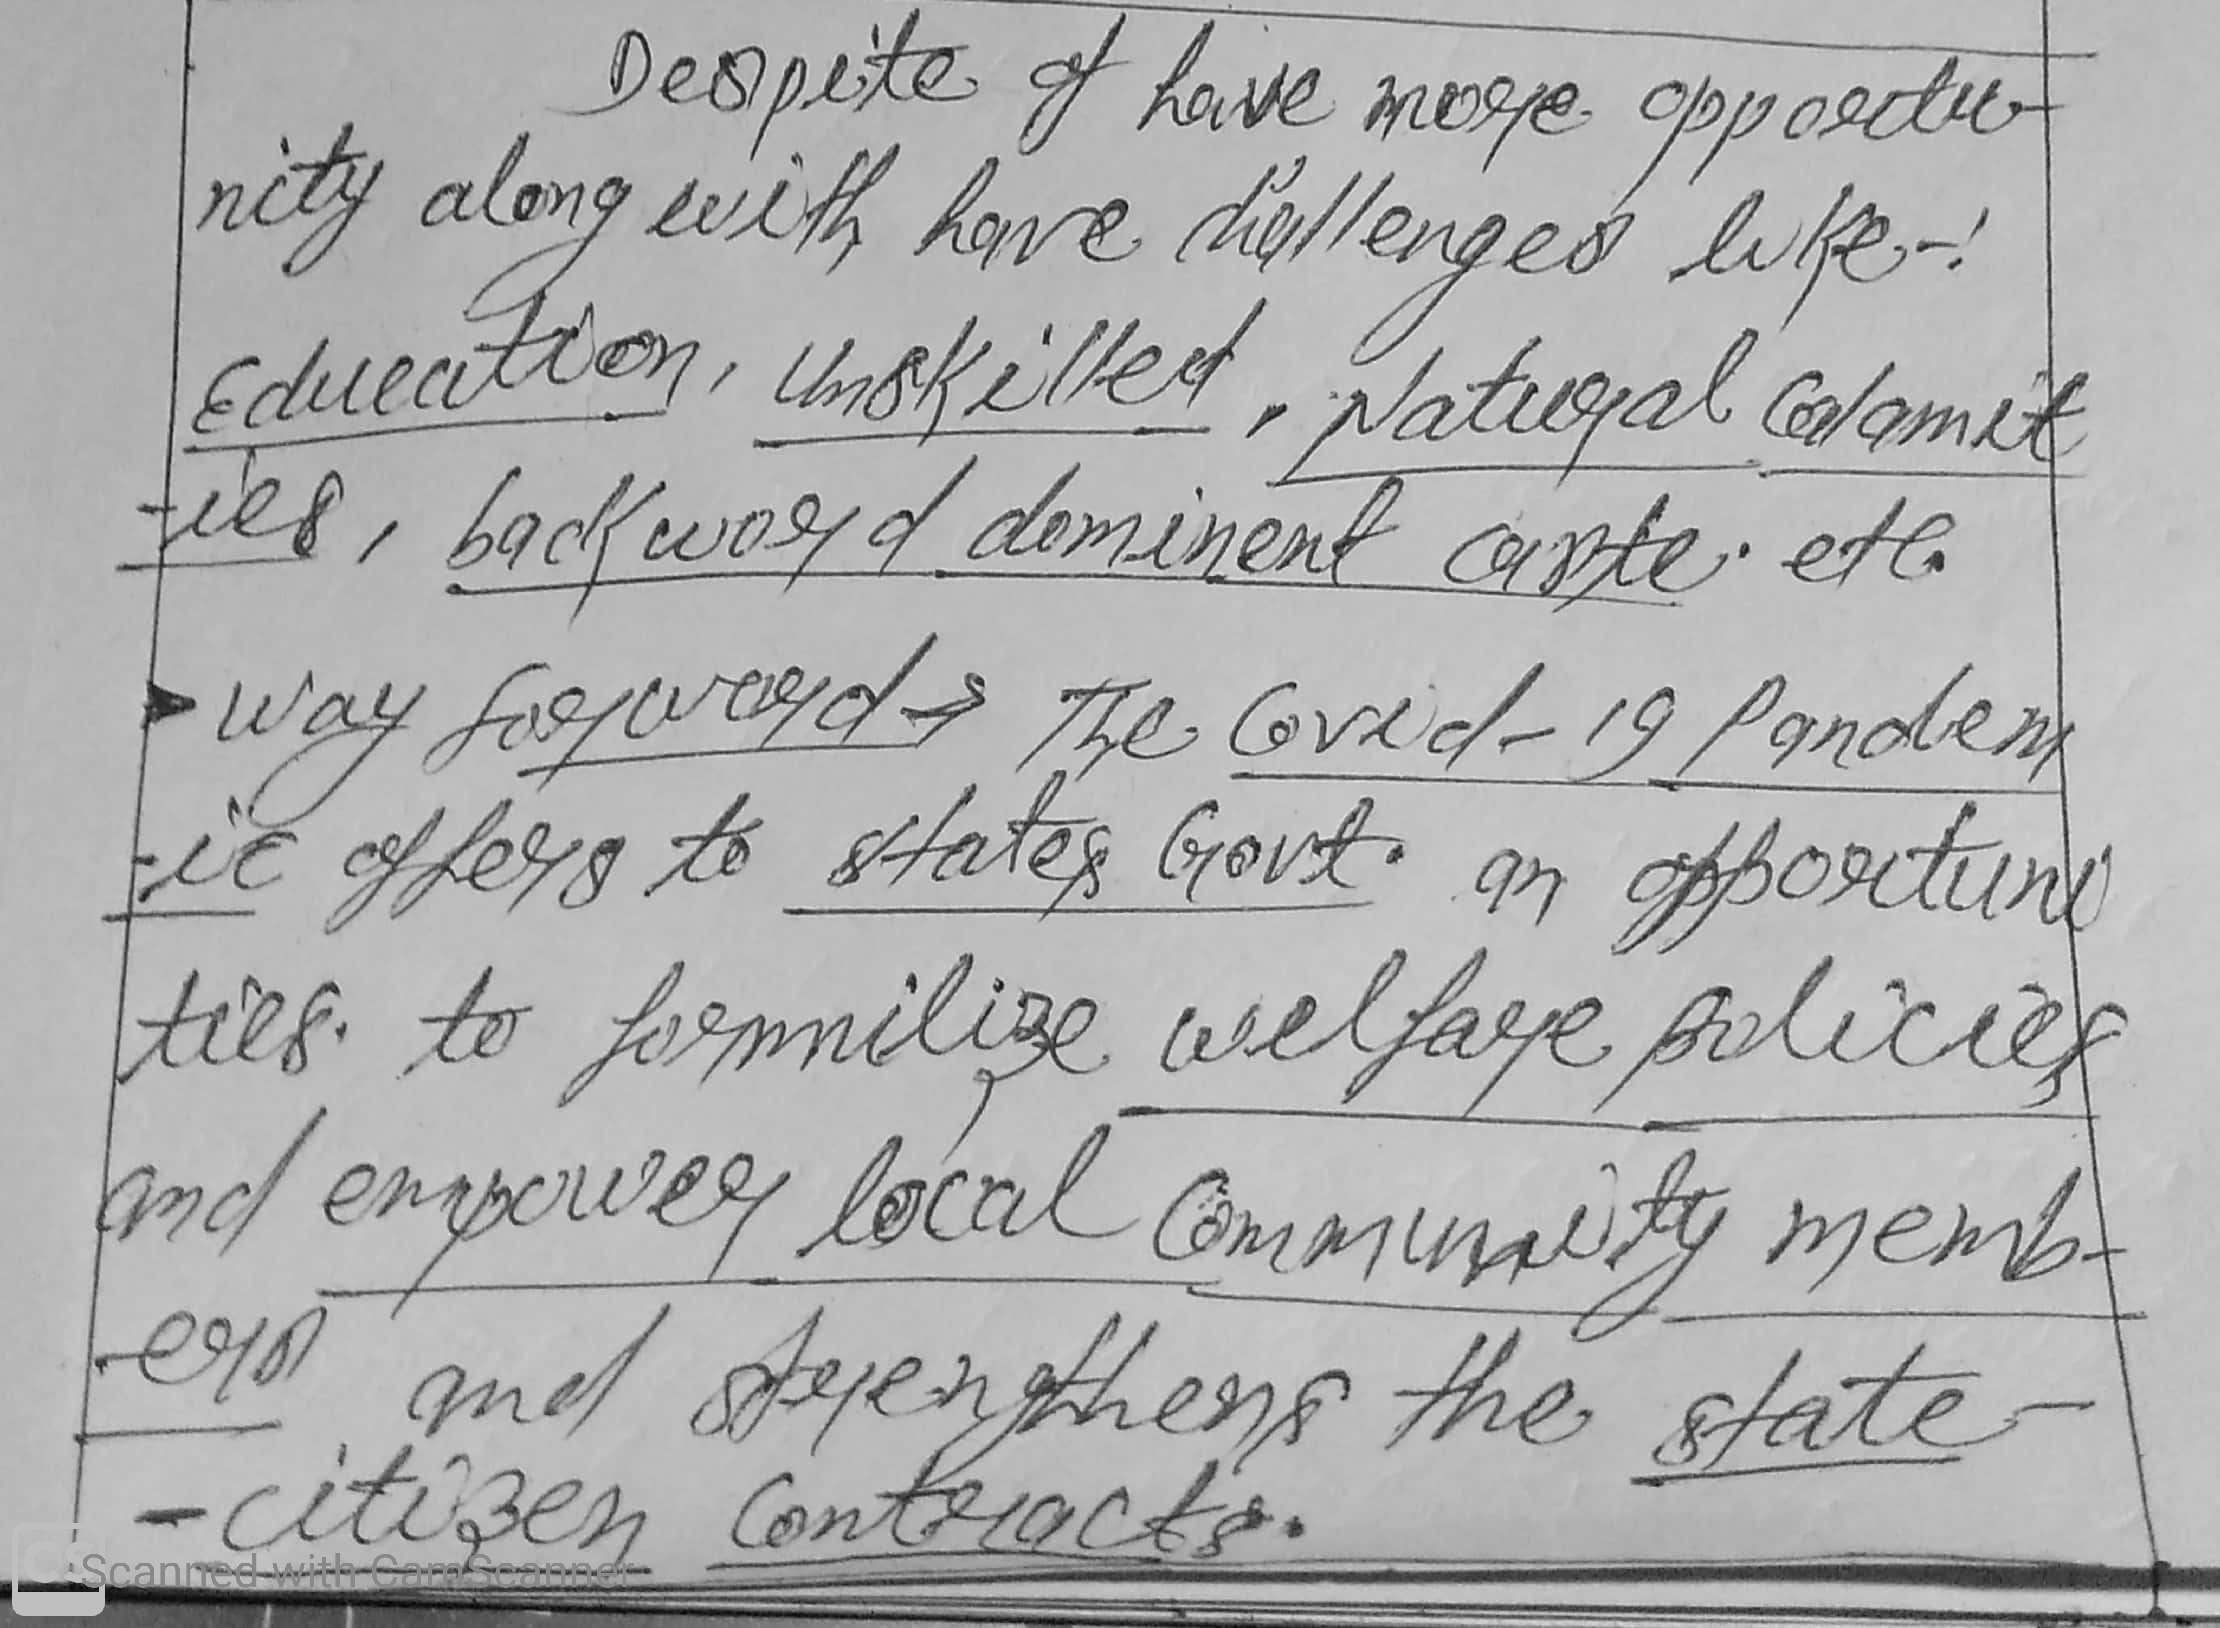 Despite of have more opportu-
nity along with have challenges like-:
Education, unskilled, Natural Calamit
-ies, backword dominent caste. etc.
▸ way forward → The Covid-19 Pandem
-ic offers to states Govt. an opportuni
ties. to formnilize welfare policies
and empower local Community memb-
-ers and strengthens the state-
-citizen contracts.
Scanned with CamScanner